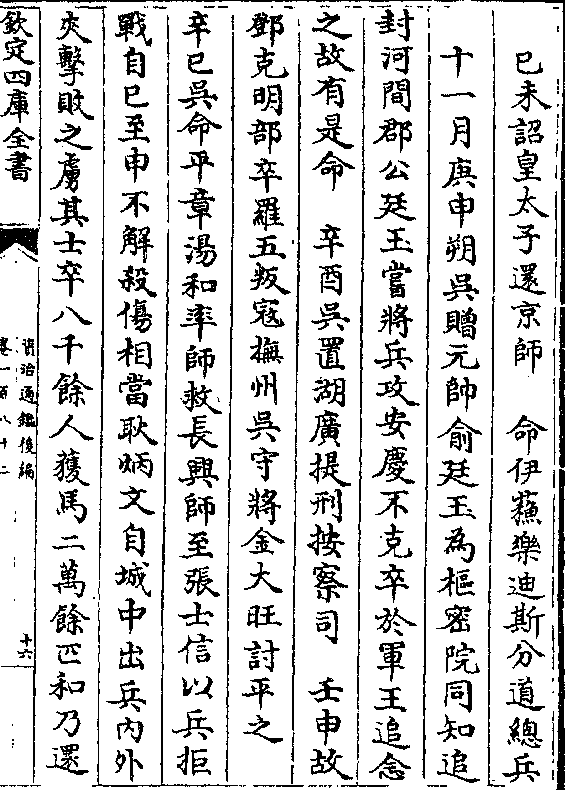 己未詔皇太子還京師　命伊蘓樂迪斯分道總兵
十一月庚申朔吳贈元帥俞廷玉為樞密院同知追
封河間郡公廷玉嘗將兵攻安慶不克卒於軍王追念
之故有是命　辛酉吳置湖廣提刑按察司　壬申故
鄧克明部卒羅五叛寇撫州吳守將金大旺討平之
辛巳吳命平章湯和率師救長興師至張士信以兵拒
戰自巳至申不解殺傷相當耿炳文自城中出兵內外
夾擊敗之虜其士卒八千餘人獲馬二萬餘匹和乃還
欽定四庫全書
資治通鑑後編
卷一百八十二
十六